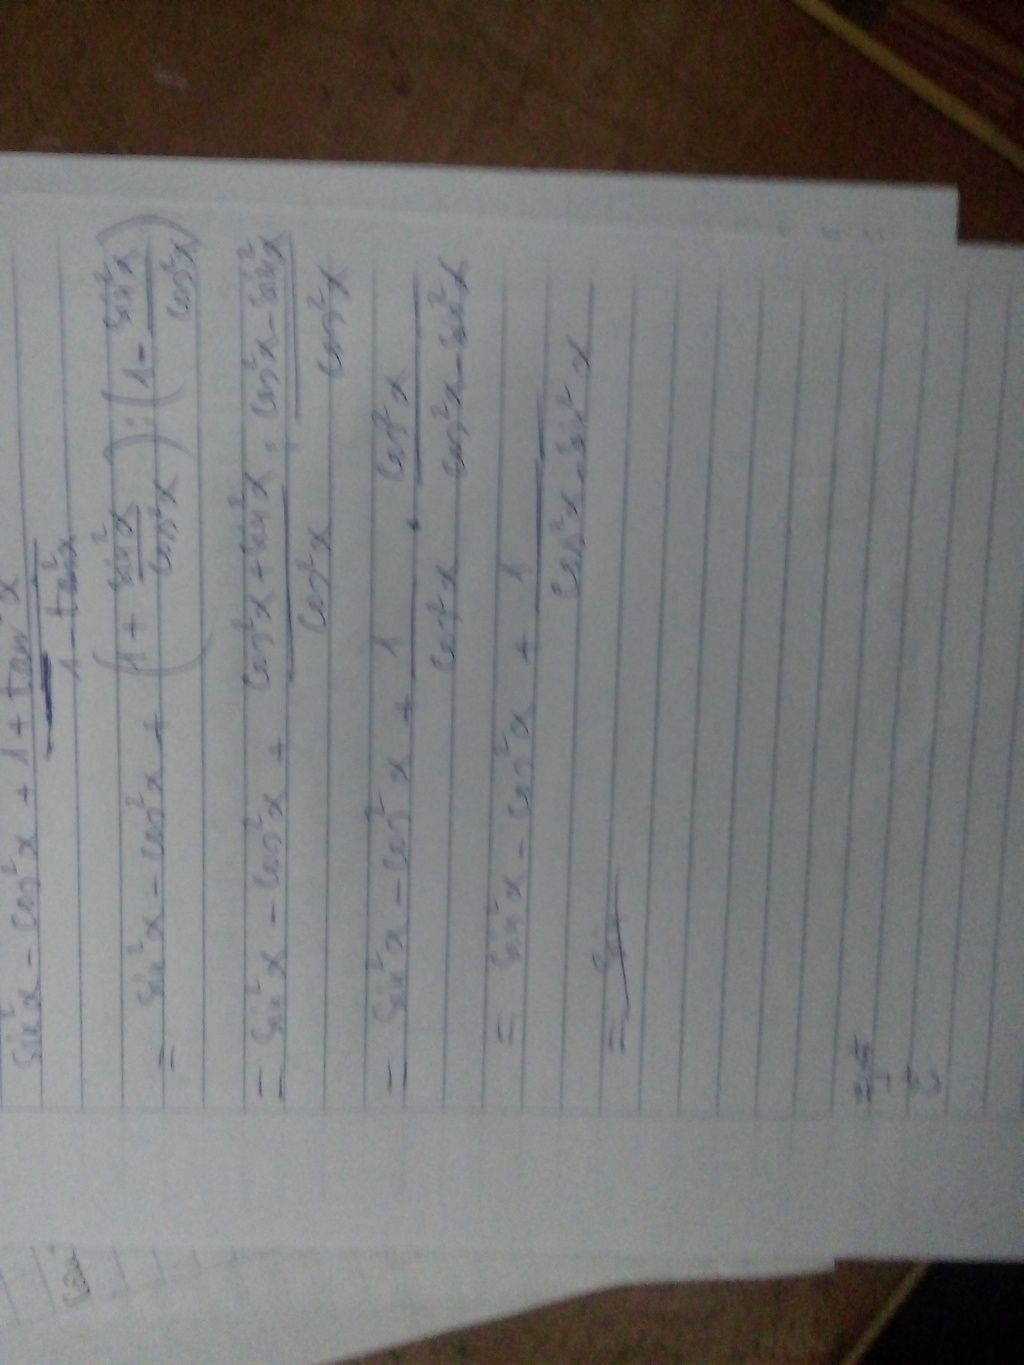 sin²x - cos²x + 1 + tan²x / 1 - tan²x
= sin²x - cos²x + (1 + sin²x / cos²x) : (1 - sin²x / cos²x)
= sin²x - cos²x + cos²x + sin²x / cos²x : cos²x - sin²x / cos²x
= sin²x - cos²x + 1 / cos²x · cos²x / cos²x - sin²x
= sin²x - cos²x + 1 / cos²x - sin²x
= sin